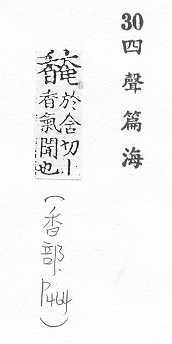 30四聲篇海
馣
於含切丨
香氣聞也
(香部.P464)